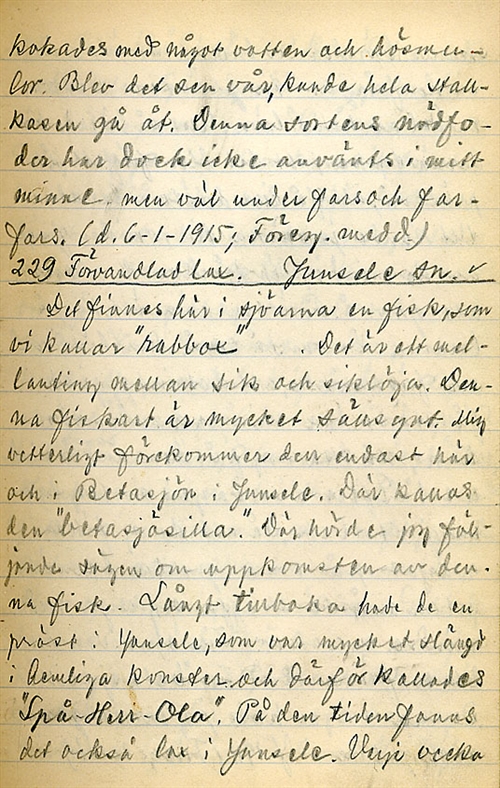 kokades med något vatten och hösmu-
lor. Blev det sen vår, kunde hela stall-
kasen gå åt. Denna sortens nödfo-
der har dock icke använts i mitt
minne, men väl under fars och far-
fars. (d. 6-1-1915; Förey. medd.)
229 Förvandlad lax. Junsele sn. ✓
Det finnes här i sjöarna en fisk, som
vi kallar "rabboxe". Det är ett mel-
lanting mellan sik och siklöja. Den-
na fiskart är mycket sällsynt. Mig
vetterligt förekommer den endast här
och i Betasjön i Junsele. Där kallas
den "betasjösilla." Där hörde jag föl-
jande sägen om uppkomsten av den-
na fisk. Långt tinboka hade de en
präst i Junsele, som var mycket slängd
i hemliga konster och därför kallades
"Spå-Herr-Ola". På den tiden fanns
det också lax i Junsele. Varje vecka